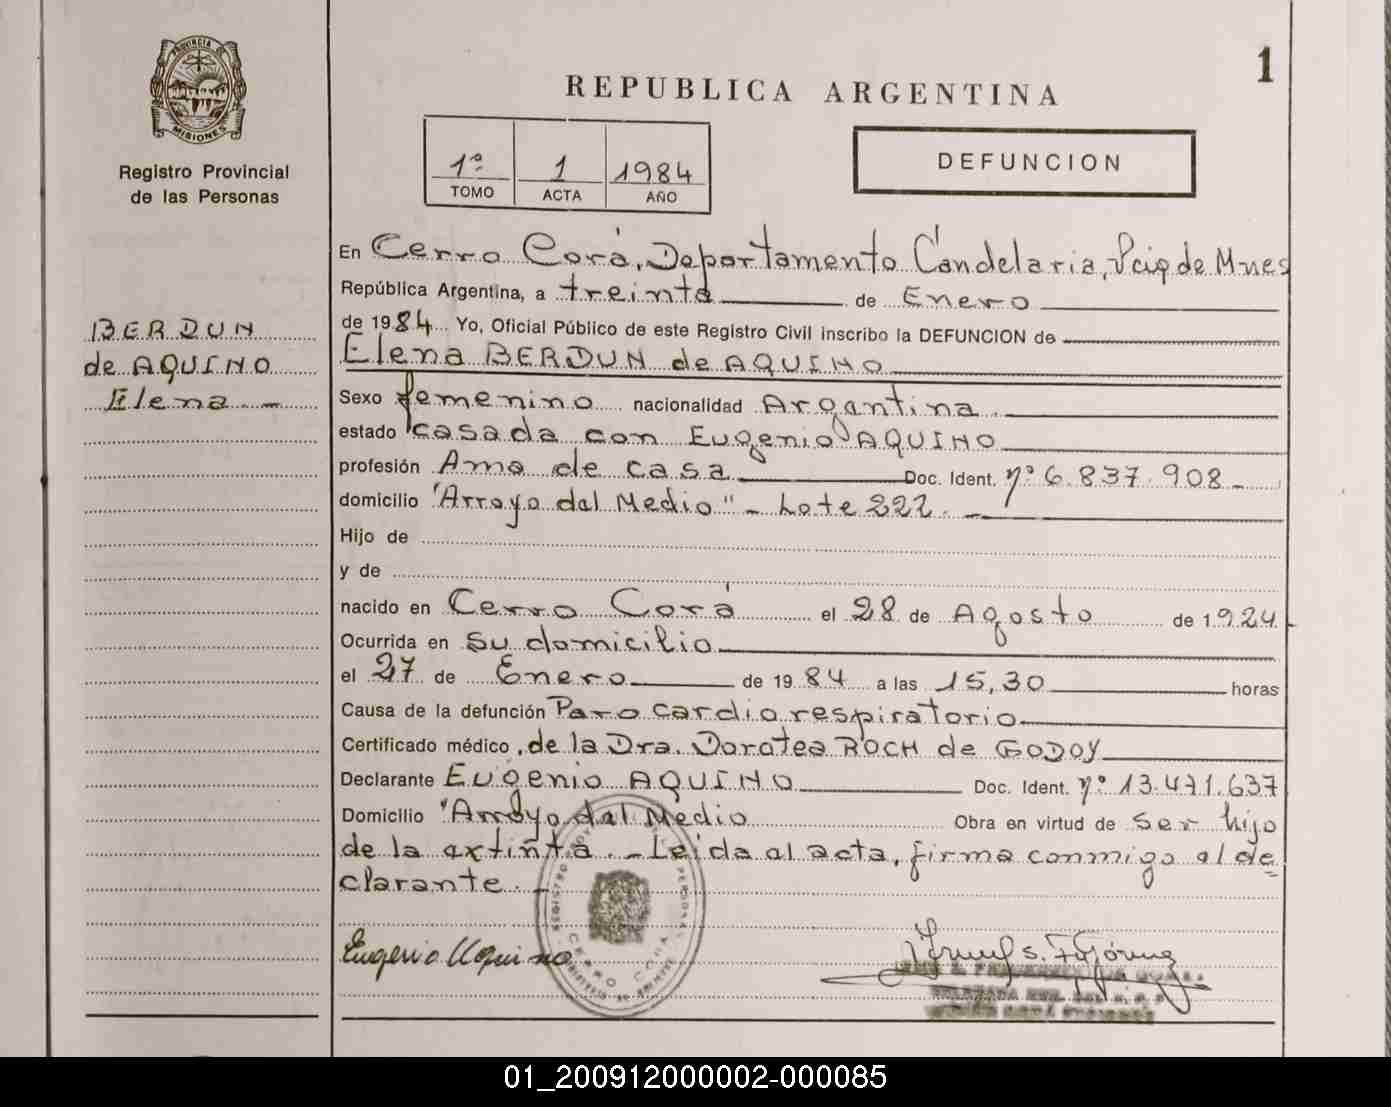 1
PROVINCIA DE
MISIONES
Registro Provincial
de las Personas
REPUBLICA ARGENTINA
1º 1 1984
TOMO ACTA AÑO
DEFUNCION
BERDUN
de AQUINO
Elena
En Cerro Corá, Departamento Candelaria, Pcia de Mnes
República Argentina, a treinta de Enero
de 1984 Yo, Oficial Público de este Registro Civil inscribo la DEFUNCION de
Elena BERDUN de AQUINO
Sexo femenino nacionalidad Argentina.
estado casada con Eugenio AQUINO
profesión Ama de casa Doc. Ident. nº 6.837.908
domicilio "Arroyo del Medio" - Lote 222. -
Hijo de
y de
nacido en Cerro Corá el 28 de Agosto de 1.924
Ocurrida en su domicilio
el 27 de Enero de 1984 a las 15,30 horas
Causa de la defunción Paro cardio respiratorio
Certificado médico, de la Dra. Dorotea ROCH de GODOY
Declarante Eugenio AQUINO Doc. Ident. nº 13.471.637
Domicilio "Arroyo del Medio Obra en virtud de ser hijo
de la extinta. - Leída el acta, firma conmigo el de
clarante. -
Eugenio Aquino
CERRO CORA
01_200912000002-000085